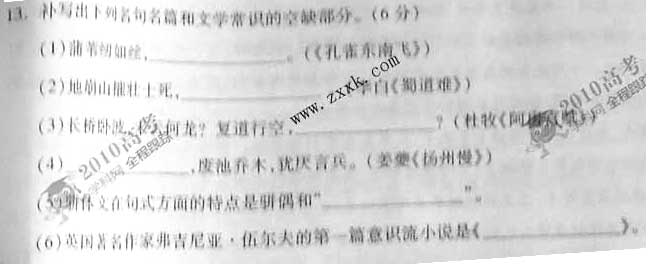 13. 补写出下列名句名篇和文学常识的空缺部分。(6分)
(1)蒲苇纫如丝,____________。(《孔雀东南飞》)
(2)地崩山摧壮士死,____________ 李白《蜀道难》)
(3)长桥卧波,未云何龙?复道行空,____________?(杜牧《阿房宫赋》)
(4)____________,废池乔木,犹厌言兵。(姜夔《扬州慢》)
(5)骈体文在句式方面的特点是骈偶和“____________”。
(6)英国著名作家弗吉尼亚·伍尔夫的第一篇意识流小说是《____________》。
www.zxxk.com
2010高考
学科网 全程跟踪
2010高考
全程跟踪